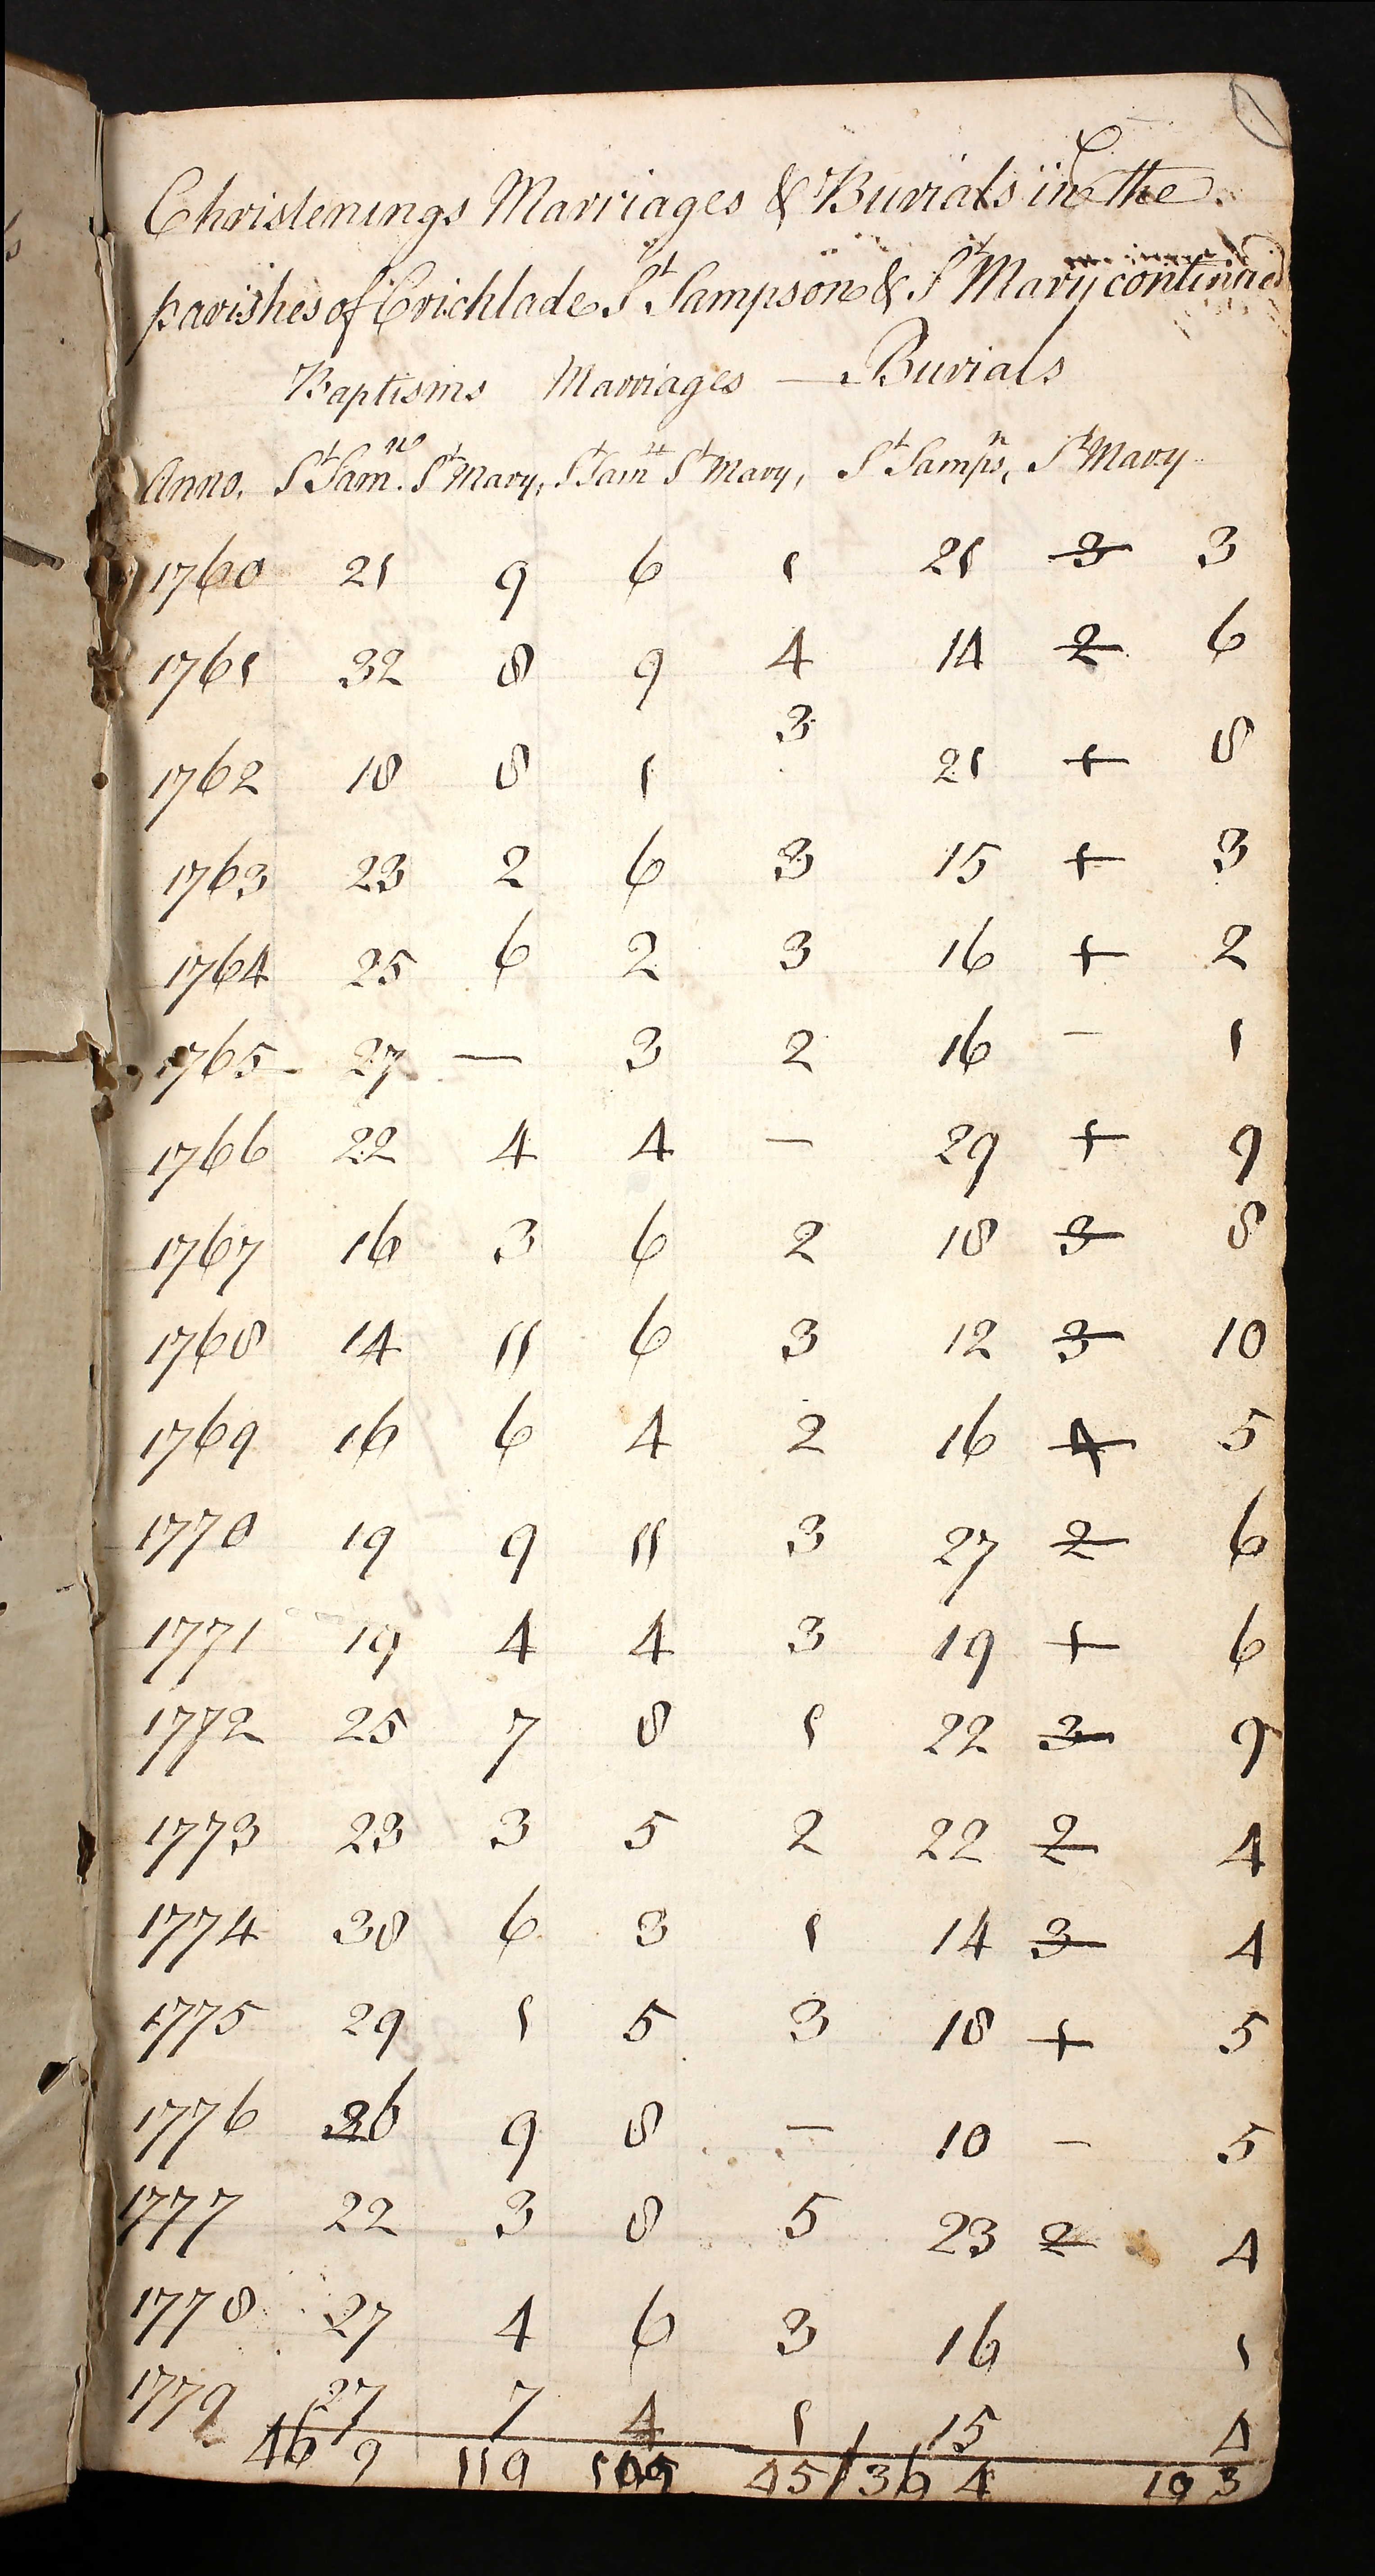 Christenings Marriages & Burials in the
parishes of Crichlade St Sampson & St Mary continued
Baptisms Marriages — Burials
Anno. St Sam.n St Mary, St Samn St Mary, St Samps,n St Mary
1760 21 9 6 1 21 3 3
1761 32 8 9 4 14 2 6
1762 18 8 1 3 21 1 8
1763 23 2 6 3 15 1 3
1764 25 6 2 3 16 1 2
1765 27 — 3 2 16 – 1
1766 22 4 4 — 29 1 9
1767 16 3 6 2 18 3 8
1768 14 11 6 3 12 3 10
1769 16 6 4 2 16 4 5
1770 19 9 11 3 27 2 6
1771 19 4 4 3 19 1 6
1772 25 7 8 1 22 3 9
1773 23 3 5 2 22 2 4
1774 38 6 3 1 14 3 4
1775 29 1 5 3 18 1 5
1776 26 9 8 — 10 – 5
1777 22 3 8 5 23 2 4
1778 27 4 6 3 16 1
1779 27 7 4 1 15 4
469 110 109 45 / 364 103